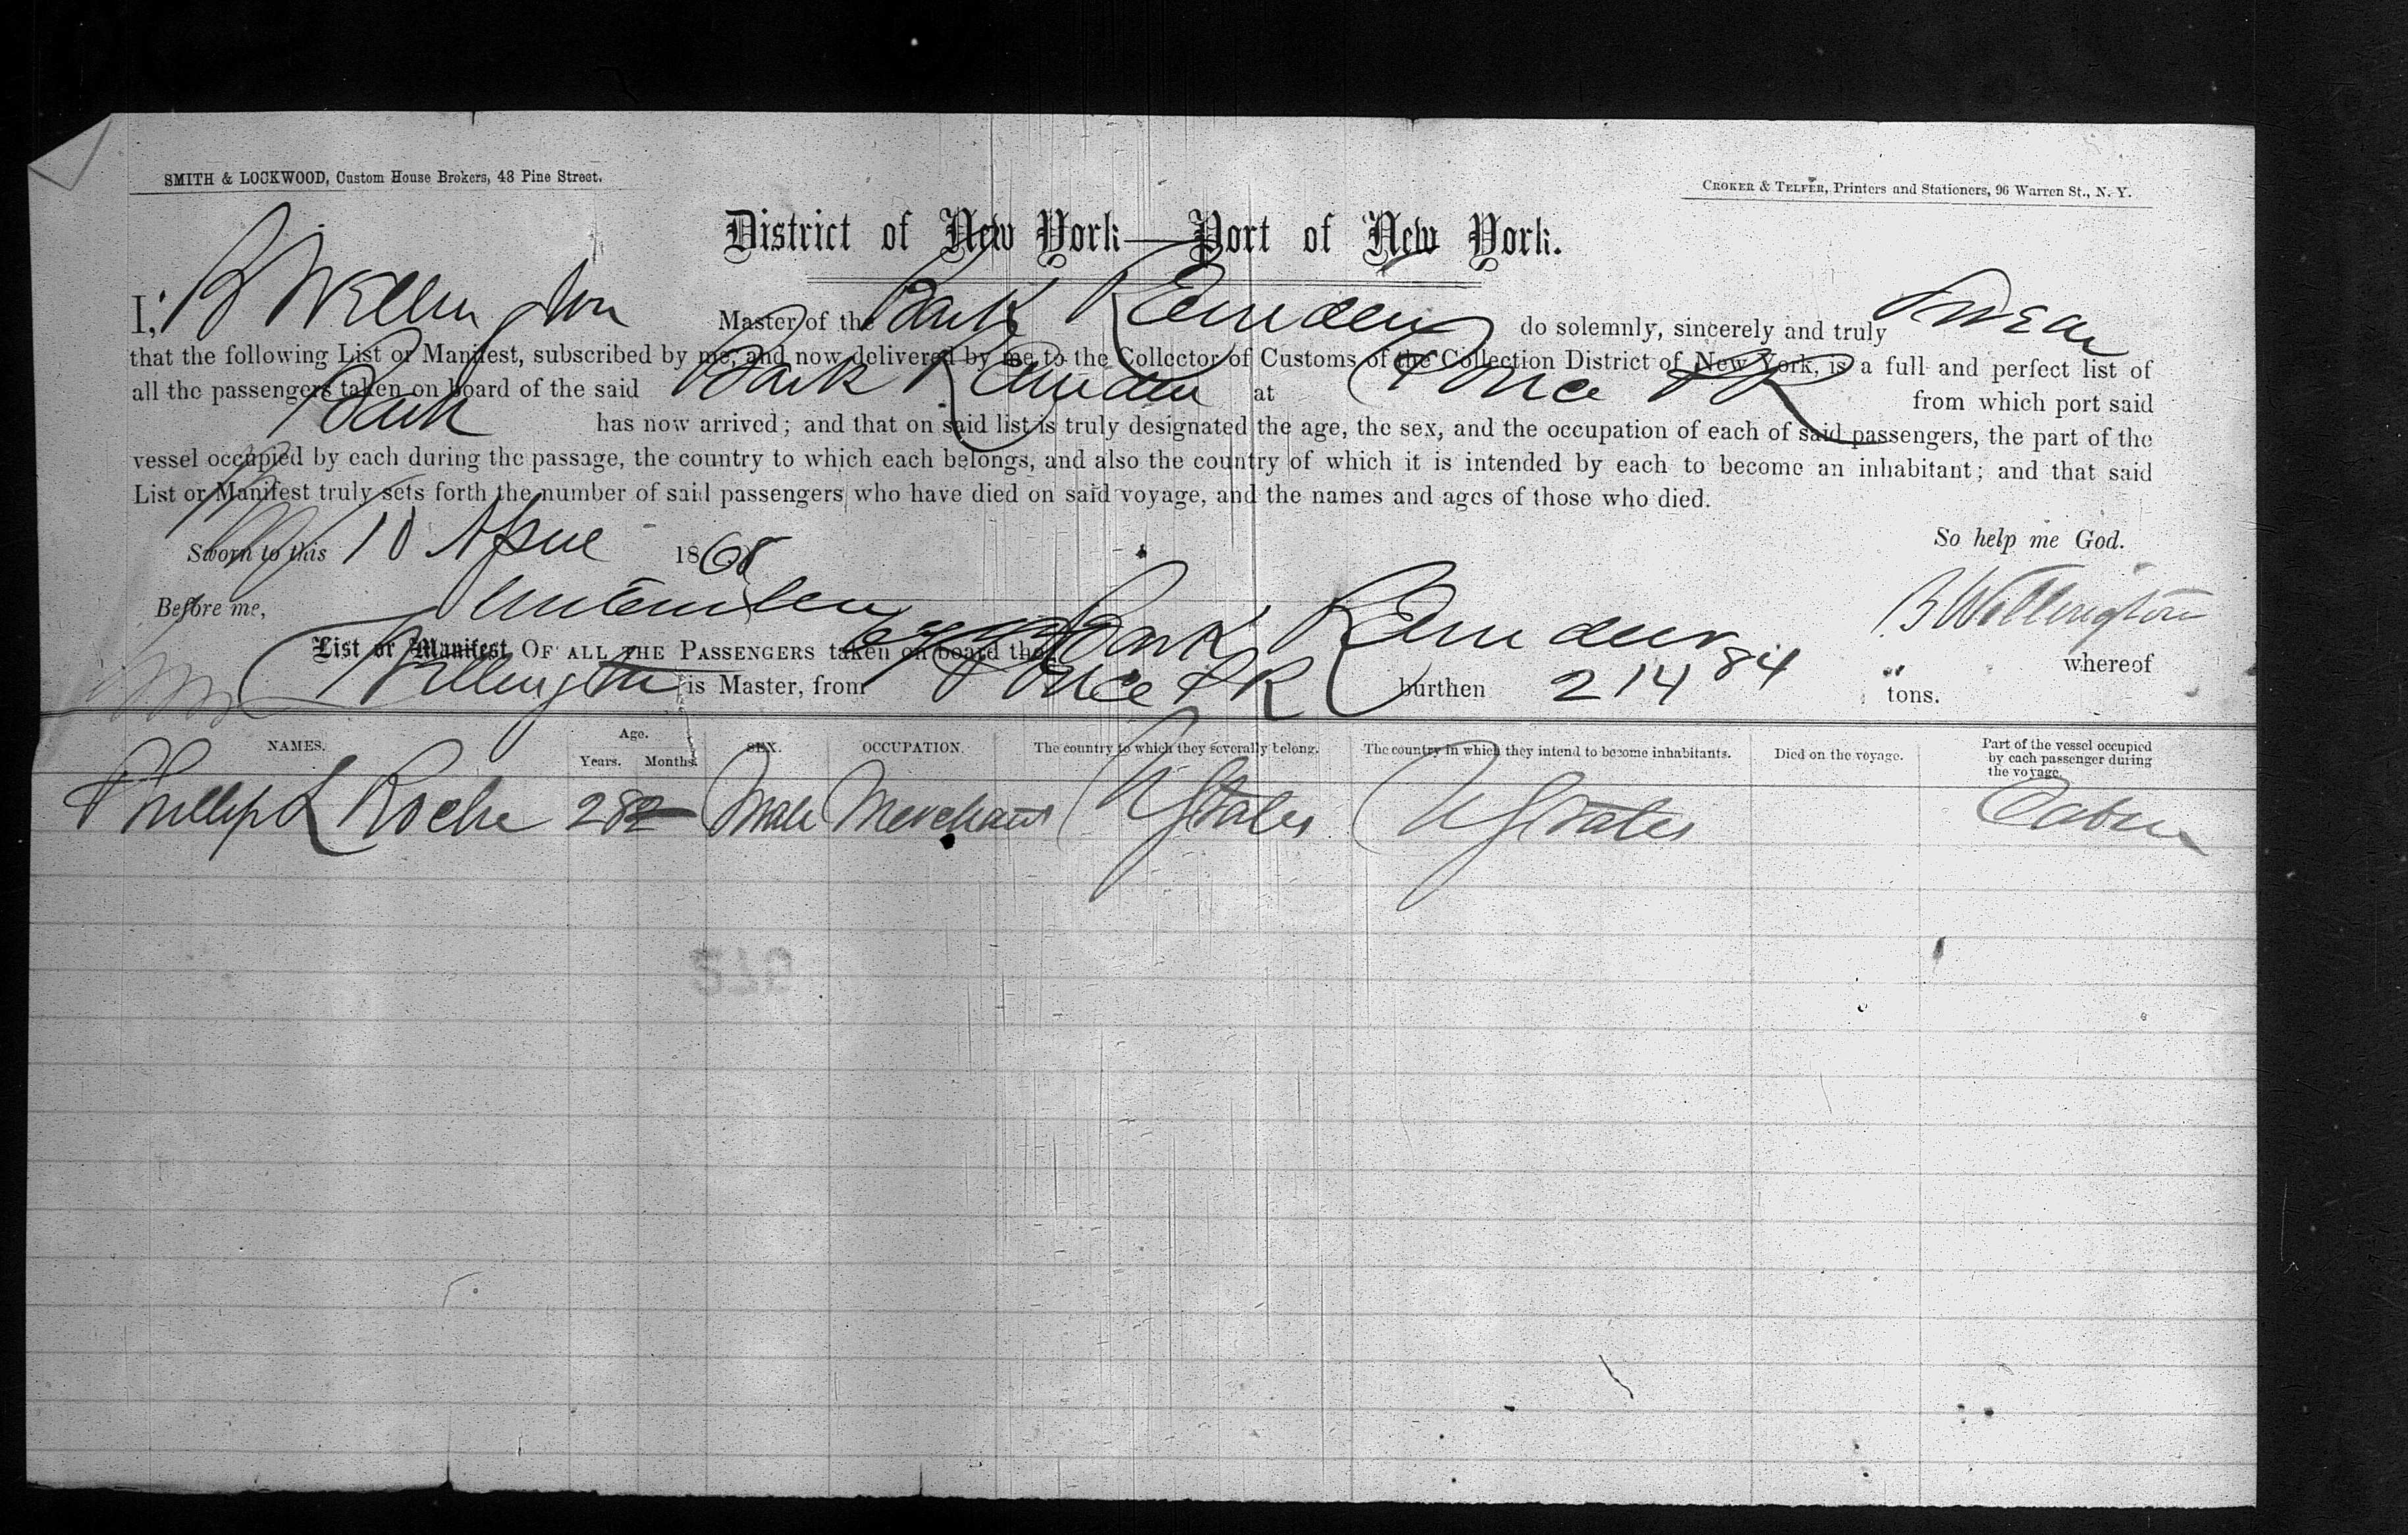 SMITH & LOCKWOOD, Custom House Brokers, 48 Pine Street.
CROKER & TELFER, Printers and Stationers, 96 Warren St., N. Y.
District of New York—Port of New York.
I, B Wellington Master of the Bark Remden do solemnly, sincerely and truly Swear
that the following List or Manifest, subscribed by me, and now delivered by me to the Collector of Customs of the Collection District of New York, is a full and perfect list of
all the passengers taken on board of the said Bark Remden at Ponce PR from which port said
Bark has now arrived; and that on said list is truly designated the age, the sex, and the occupation of each of said passengers, the part of the
vessel occupied by each during the passage, the country to which each belongs, and also the country of which it is intended by each to become an inhabitant; and that said
List or Manifest truly sets forth the number of said passengers who have died on said voyage, and the names and ages of those who died.
Sworn to this 10 April 1868 So help me God.
Before me, B Wellington
List or Manifest OF ALL THE PASSENGERS taken on board the Bark Remden whereof
Wellington is Master, from Ponce PR burthen 214 84 tons.
NAMES. Age. Years. Months. SEX. OCCUPATION. The country to which they severally belong. The country in which they intend to become inhabitants. Died on the voyage. Part of the vessel occupied by each passenger during the voyage.
Phillip L Roche 28 Male Merchant U States U States Cabin